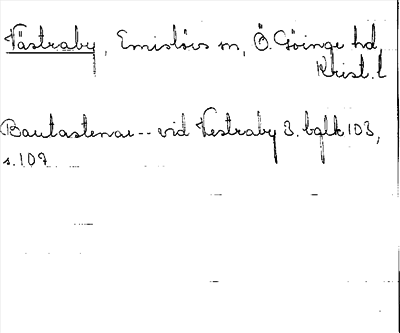 Västraby, Emislövs sn, Ö. Göinge hd,
Krist. l
Bautastenar -- vid Vestraby 3. bglk 103,
s. 109